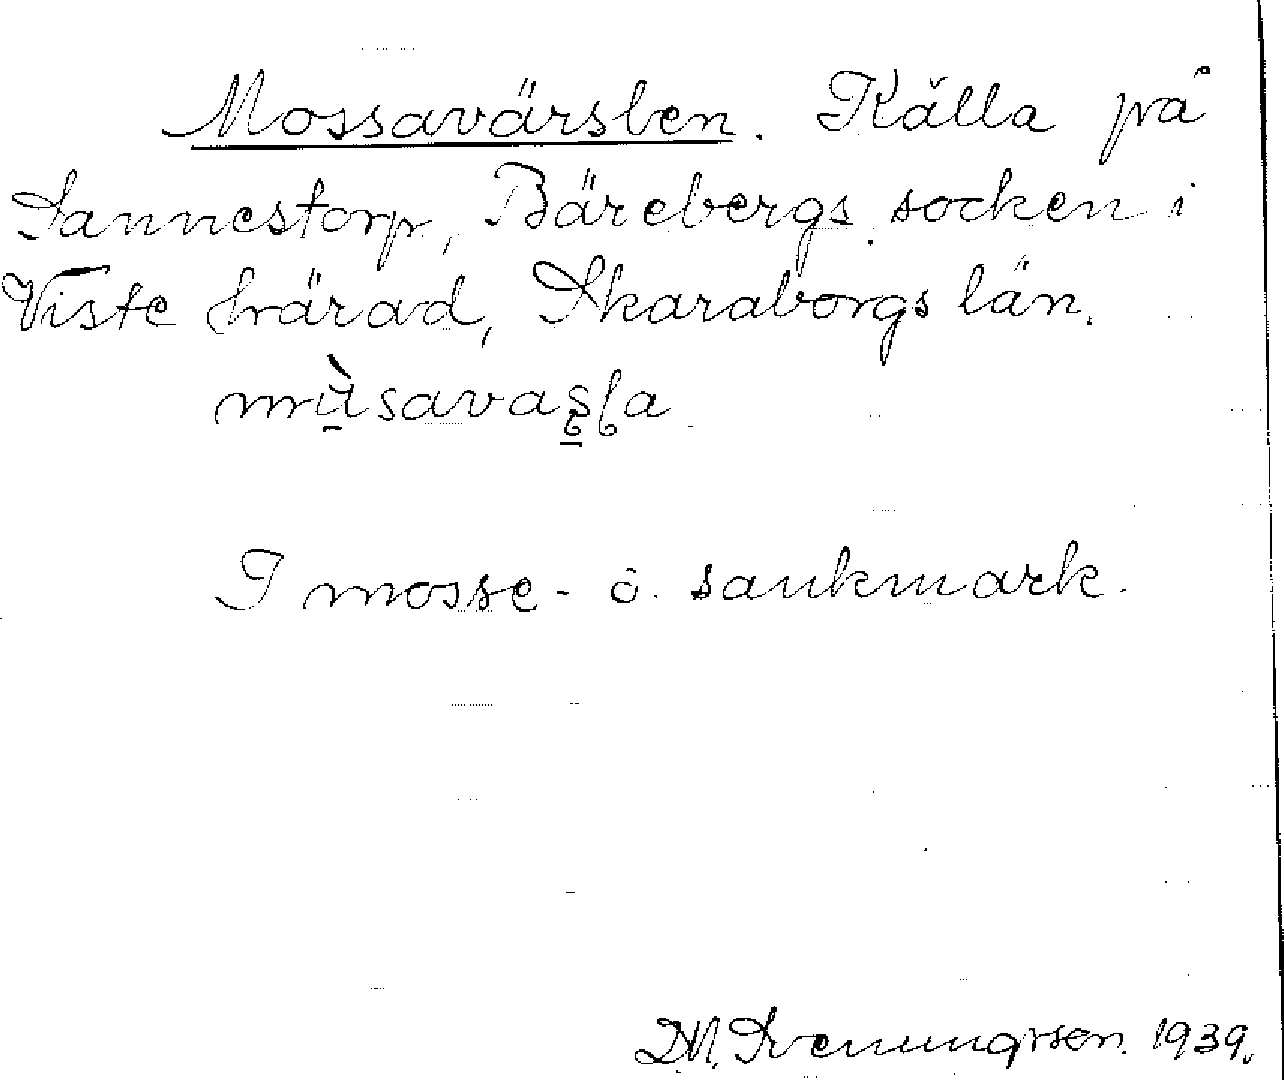 Mossavärslen. Källa på
Sannestorp, Bärebergs socken i
Viste härad, Skaraborgs län.
I mosse- o. sankmark.
D.M. Svenungsson. 1939.